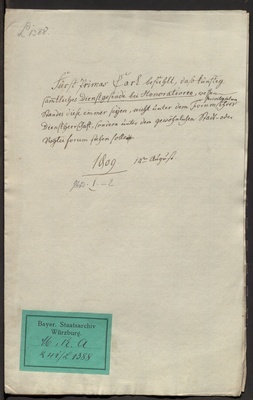 L 1388.
Fürst Primas Carl befiehlt, daß künftig
sämtliches Dienstgesinde bei Honoratioren, welchen
Standes diese immer seyen, nicht unter dem Forum ihrer
privilegirten
Dienstherrschaft, sondern unter den gewöhnlichen Stadt- oder
forum stehen solle
1809 14ten August.
1–2
Bayer. Staatsarchiv
Würzburg
M. R. A
L 1388